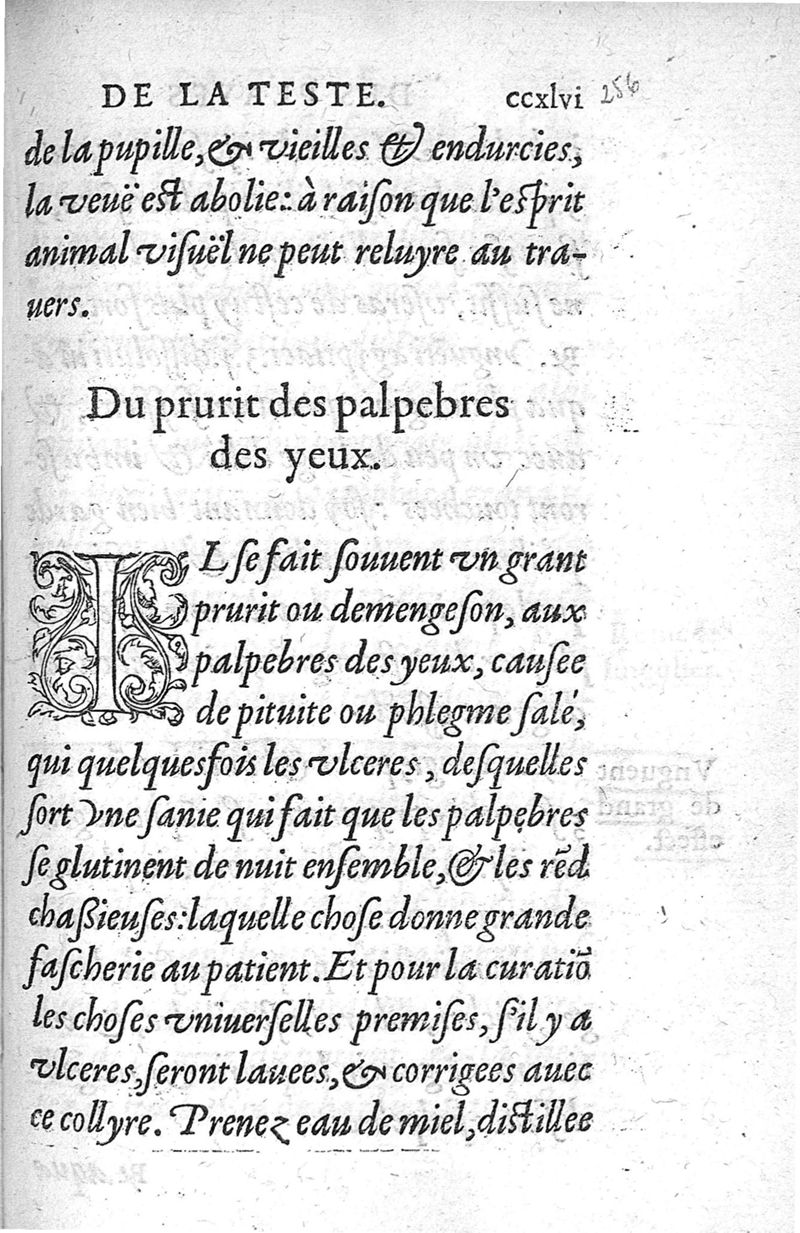 DE LA TESTE. ccxlvi 256
de la pupille, & vieilles & endurcies,
la veuë est abolie: à raiſon que l'eſprit
animal viſuël ne peut reluyre au tra-
uers.
Du prurit des palpebres
des yeux.
IL ſe fait ſouuent vn grant
prurit ou demengeſon, aux
palpebres des yeux, cauſee
de pituite ou phlegme ſalé,
qui quelquesfois les vlceres, deſquelles
ſort vne ſanie qui fait que les palpebres
ſe glutinent de nuit enſemble, & les rēd
chaßieuſes: laquelle choſe donne grande
faſcherie au patient. Et pour la curatiō
les choſes vniuerſelles premiſes, s'il y a
vlceres, ſeront lauees, & corrigees auec
ce collyre. Prenez eau de miel, distillee